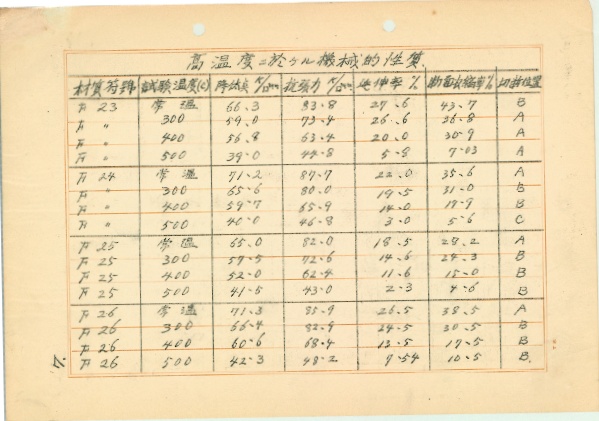 高温度ニ於ケル機械的性質
材質符号 試験温度(c) 降伏点 抗張力 延伸率 % 断面収縮率% 切断位置
23 常温 66.3 83.8 27.6 43.7 B
〃 300 59.0 73.4 26.6 26.8 A
〃 400 56.8 63.4 20.0 30.9 A
〃 500 39.0 44.8 5.8 7.03 A
24 常温 71.2 87.7 22.0 35.6 A
〃 300 65.6 80.0 19.5 31.0 B
〃 400 59.7 65.9 14.0 17.9 B
〃 500 40.0 46.8 3.0 5.6 C
25 常温 65.0 82.0 18.5 28.2 A
25 300 57.5 72.6 14.6 24.3 B
25 400 52.0 62.4 11.6 15.0 B
25 500 41.5 43.0 2.3 4.6 B
26 常温 71.3 85.9 26.5 38.5 A
26 300 66.4 82.9 24.5 30.5 B
26 400 60.6 68.4 13.5 17.5 B
26 500 42.3 48.2 7.54 10.5 B
7.